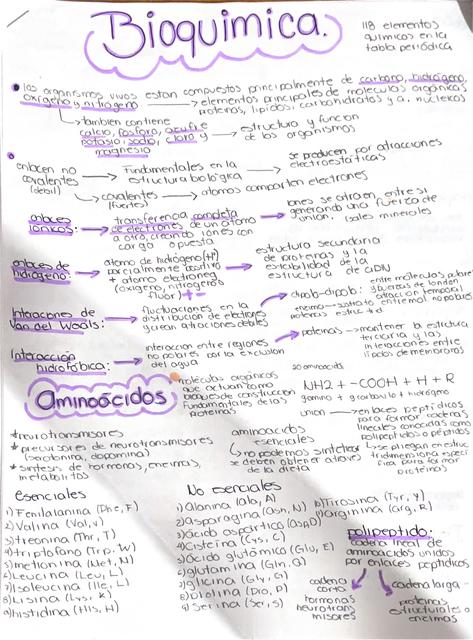 Bioquimica.
118 elementos
quimicos en la
tabla periódica
los organismos vivos estan compuestos principalmente de carbono, hidrógeno,
oxigeno y nitrógeno → elementos principales de moleculas orgánicas
proteinas, lipidos, carbohidratos y a. nucleicos
también contiene
calcio, fosforo, azufre
potasio, sodio, cloro y → estructura y funcion
magnesio de los organismos
enlaces no
covalentes
(debil) → Fundamentales en la
estructura biológica → se producen por atracciones
electroestáticas
covalentes → atomos comparten electrones
(fuertes)
enlaces
ionicos: → transferencia completa
de electrones de un atomo
a otro, creando iones con
carga opuesta → iones se atraen entre si
generando una fuerza de
union. sales minerales
enlaces de
hidrógeno → atomo de hidrógeno (H+)
parcialmente positivo
+ atomo electroneg
(oxigeno, nitrogeno
fluor) + - → estructura secundaria
de proteinas y la
estabilidad de la
estructura de ADN
Interacciones de
Van del Waals: → fluctuaciones en la
distribucion de electrones
y crean atracciones debiles
dipolo-dipolo:
entre moleculas polares
atracción temporal
entre mol no polares
proteinas → mantener la estructura
terciaria y las
interacciones entre
lipidos de membranas
Interacción
hidrofóbica: → interaccion entre regiones
no polares por la exclusion
del agua
Aminoácidos
moléculas orgánicas
que actuan como
bloques de construcción
fundamentales de las
proteinas
20 aminoacidos
NH2 + -COOH + H + R
amino + g carboxilo + hidrógeno
union → enlaces peptidicos
para formar cadenas
lineales conocidas como
polipeptidos o péptidos
↳ se pliegan en estruc
tridimensional especi
fica para formar
proteinas
*neurotransmisores
* precursores de neurotransmisores
(serotonina, dopamina)
* sintesis de hormonas, enzimas,
metabolitos
aminoacidos
esenciales
↳ no podemos sintetizar
se deben obtener atraves
de la dieta
esenciales
1) Fenilalanina (Phe, F)
2) Valina (Val, V)
3) treonina (Thr, T)
4) triptofano (Trp, W)
5) metionina (Met, N)
6) Leucina (Leu, L)
7) Isoleucina (Ile, L)
8) Lisina (Lys, K)
9) histidina (His, H)
No esenciales
1) Alanina (ala, A)
2) asparagina (Asn, N)
3) Acido aspartico (Asp, D)
4) Cisteina (Cys, C)
5) Acido glutámico (Glu, E)
6) glutamina (Gln, Q)
7) glicina (Gly, G)
8) prolina (Pro, P)
9) serina (Ser, S)
10) Tirosina (Tyr, Y)
11) arginina (arg, R)
polipeptido:
cadena lineal de
aminoacidos unidos
por enlaces peptidicos
cadena
corta
hormonas
neurotrans
misores
cadena larga
proteinas
estructurales o
enzimas